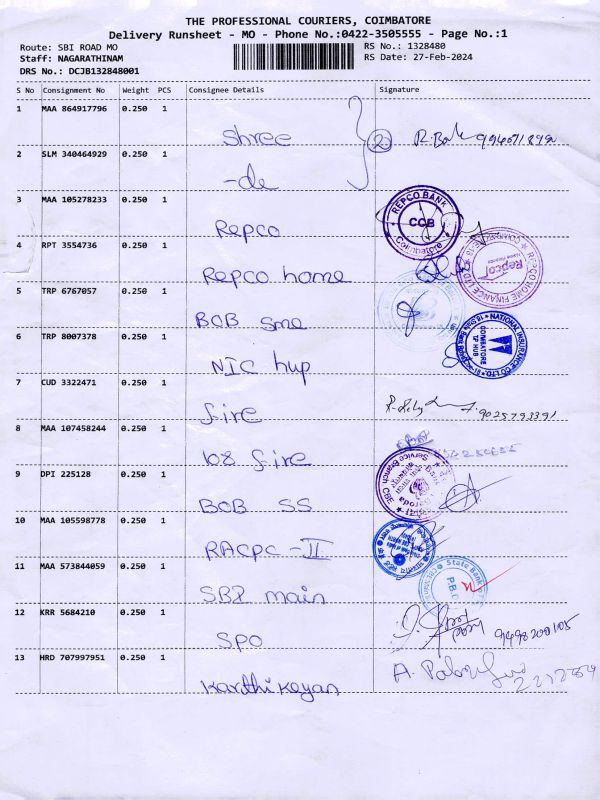 THE PROFESSIONAL COURIERS, COIMBATORE
Delivery Runsheet - MO - Phone No.:0422-3505555 - Page No.:1
Route: SBI ROAD MO RS No.: 1328480
Staff: NAGARATHINAM RS Date: 27-Feb-2024
DRS No.: DCJB132848001
S No Consignment No Weight PCS Consignee Details Signature
1 MAA 864917796 0.250 1
Shree 2
2 SLM 340464929 0.250 1
-do
3 MAA 105278233 0.250 1
REPCO BANK
CCB
Coimbatore
Repco
4 RPT 3554736 0.250 1
REPCO HOME FINANCE LTD
Repco
Repco home
5 TRP 6767057 0.250 1
BOB sme
6 TRP 8007378 0.250 1
NATIONAL INSURANCE CO LTD
COIMBATORE
TP HUB
NIC hup
7 CUD 3322471 0.250 1
fire 9025793391
8 MAA 107458244 0.250 1
108 fire
9 DPI 225128 0.250 1
Service Branch CBE
BOB SS
10 MAA 105598778 0.250 1
RACPC - II
11 MAA 573844059 0.250 1
State Bank
SBI main
12 KRR 5684210 0.250 1
SPO
13 HRD 707997951 0.250 1
Karthikeyan